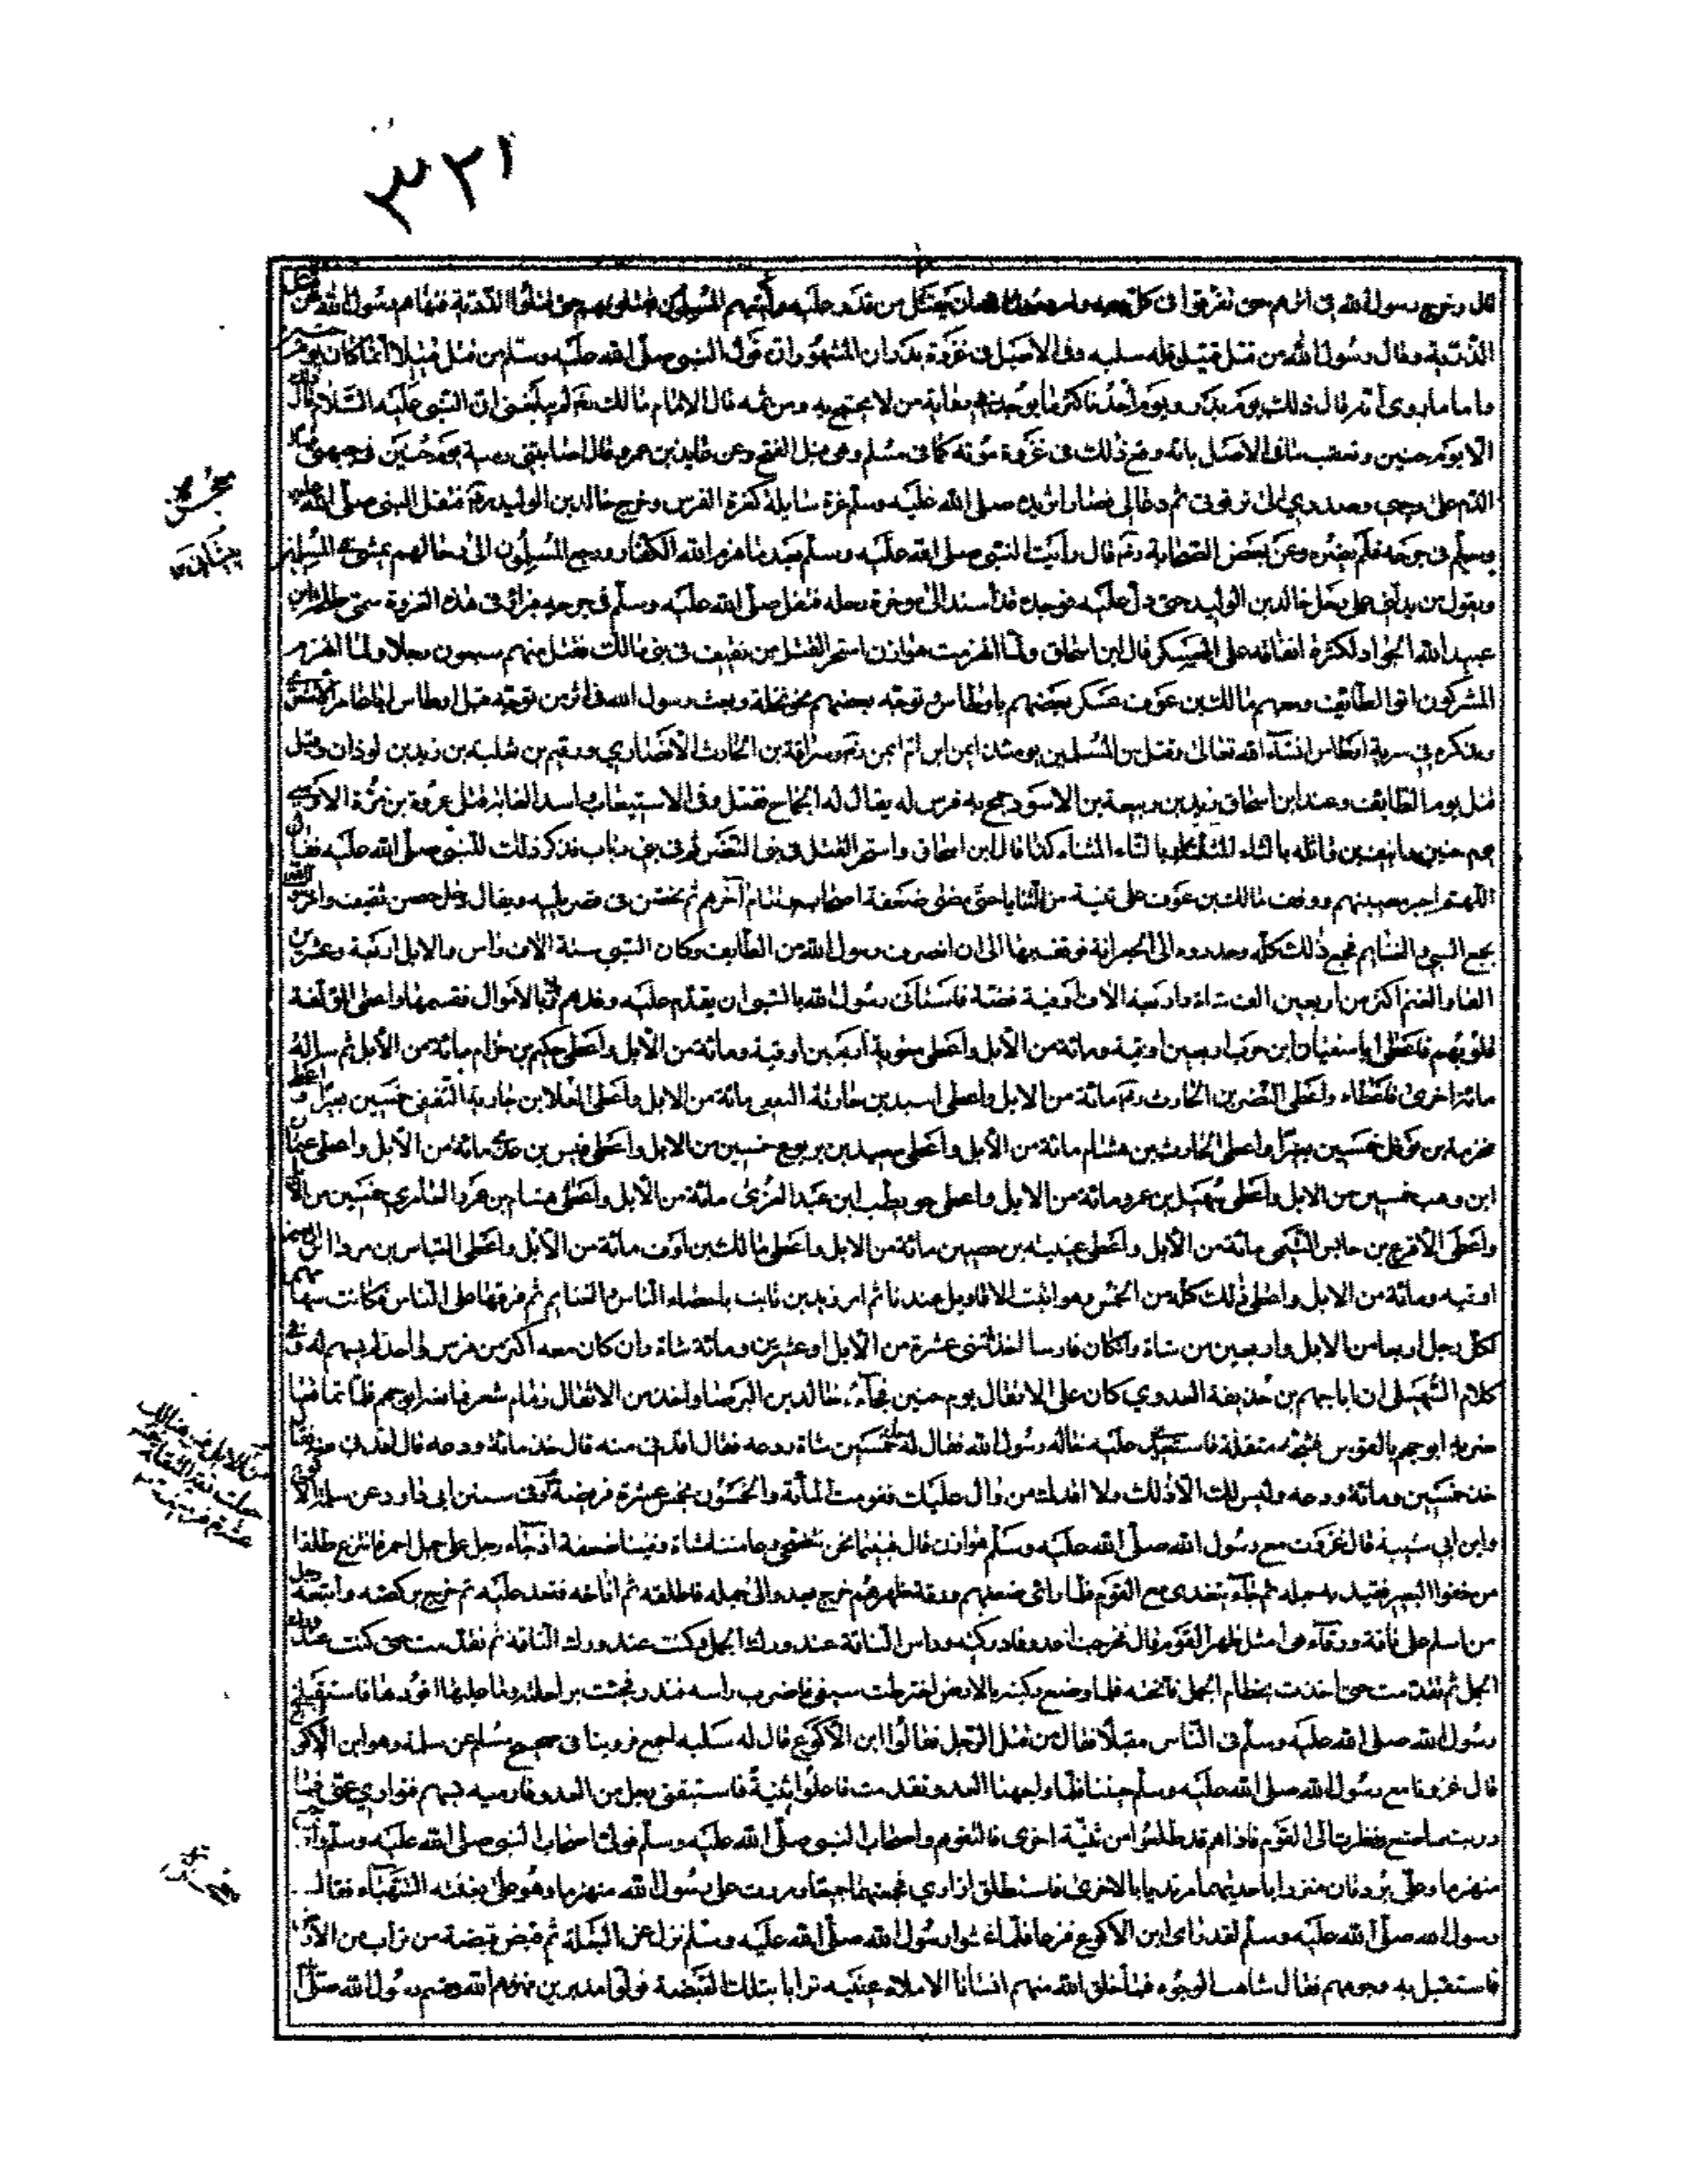 ٣٢١
قل وخرج رسول الله في اثرهم حتى تفرقوا في كل وجه وامر ان يقتل من قدر عليه واتبعهم المسلمون يقتلونهم حتى قتلوا الذرية فنهاهم رسول الله عن قتل
الذرية وقال رسول الله من قتل قتيلا فله سلبه وفي الاصل في غزوة بدر وان المشهور ان قول النبي صلى الله عليه وسلم من قتل قتيلا انما كان يوم حنين
واما ما روي انه قال ذلك يوم بدر ويوم احد فاكثر ما يوجد في رواية من لا يحتج به ومن ثمه قال الامام مالك لم يبلغني ان النبي عليه السلام قال ذلك
الا يوم حنين وتعقب ما في الاصل بانه وقع ذلك في غزوة موتة كما في مسلم وهي قبل الفتح وعن عايذ بن عمرو قال اصابتني رمية يوم حنين في جبهتي فسال
الدم على وجهي وصدري الى ترقوتي ثم دعا لي فصار اثر يده صلى الله عليه وسلم غرة سايلة كغرة الفرس وخرج خالد بن الوليد فتفل النبي صلى الله عليه
وسلم في جرحه فلم يضره وعن بعض الصحابة قال رأيت النبي صلى الله عليه وسلم بعد ما هزم الله الكفار ورجع المسلمون الى رحالهم يمشي في المسلمين
ويقول من يدلني على رحل خالد بن الوليد حتى دل عليه فوجده قد أسند الى موخرة رحله فتفل صلى الله عليه وسلم في جرحه فبرأ وفي هذه الغزوة سمى طلحة بن
عبيد الله الجواد لكثرة انفاقه على العسكر قال ابن اسحاق ولما انهزمت هوازن استحر القتل من ثقيف في بني مالك فقتل منهم سبعون رجلا ولما انهزم
المشركون اتوا الطائف ومعهم مالك بن عوف وعسكر بعضهم باوطاس وتوجه بعضهم نحو نخلة وبعث رسول الله في اثر من توجه قبل اوطاس ابا عامر الاشعري
وسنذكره في سرية اوطاس انشاء الله تعالى وقتل من المسلمين يومئذ ايمن ابن ام ايمن وسراقة بن الحارث الانصاري ورقيم بن ثعلبة بن زيد بن لوذان وقيل
قتل يوم الطائف وعند ابن اسحاق زيد بن ربيعة بن الاسود جمح به فرس له يقال له الجناح فقتل وفي الاستيعاب واسد الغابة قتل عروة بن مرة الاوسي
قال ابن اسحاق واستحر القتل في بني النضر ثم في بني رباب فذكر ذلك للنبي صلى الله عليه فقال
اللهم اجبر مصيبتهم ووقف مالك بن عوف على ثنية من الثنايا حتى مضى ضعفة اصحابه وتتام آخرهم ثم تحصن في قصر بليه ويقال دخل حصن ثقيف وامر
بجمع السبي والغنايم فجمع ذلك كله وحدروه الى الجعرانة فوقف بها الى ان انصرف رسول الله من الطائف وكان السبي ستة الاف راس والابل اربعة وعشرين
الفا والغنم اكثر من اربعين الف شاة واربعة الاف اوقية فضة فاستأنى رسول الله بالسبي ان يقدم عليه وفدهم ثم بالاموال فقسمها واعطى المؤلفة
قلوبهم فاعطى ابا سفيان ابن حرب اربعين اوقية ومائة من الابل واعطى معوية أربعين اوقية ومائة من الابل واعطى حكيم بن حزام مائة من الابل ثم سأله
مائة اخرى فاعطاه واعطى النضر بن الحارث مائة من الابل واعطى اسيد بن حارثة مائة من الابل واعطى العلا بن جارية الثقفي خمسين بعيرا واعطى
مخرمة بن نوفل خمسين بعيرا واعطى الحارث بن هشام مائة من الابل واعطى سعيد بن يربوع خمسين من الابل واعطى قيس بن عدي مائة من الابل واعطى عثمان
ابن وهب خمسين من الابل واعطى سهيل بن عمرو مائة من الابل واعطى حويطب ابن عبد العزى مائة من الابل واعطى هشام بن عمرو العامري خمسين من الابل
واعطى الأقرع بن حابس التميمي مائة من الابل واعطى عيينة بن حصين مائة من الابل واعطى مالك بن عوف مائة من الابل واعطى العباس بن مرداس
اوقيه ومائة من الابل واعطى ذلك كله من الخمس وهو اثبت الاقاويل عندنا ثم امر زيد بن ثابت باحصاء الناس والغنايم ثم فرقها على الناس فكانت سهامهم
لكل رجل اربعا من الابل واربعين من شاة وان كان فارسا اخذ اثنى عشرة من الابل او عشرين ومائة شاة وان كان معه اكثر من فرس واحد لم يسهم له وفي
كلام السهيلي ان ابا جهم بن حذيفة العدوي كان على الانفال يوم حنين فجاءه خالد بن البرصا واخذ من الانفال زمام شعر فمانعه ابو جهم فلما تمانعا
ضربه ابو جهم بالقوس فشجه منقلة فاستعدى عليه خالد رسول الله فقال له خذ خمسين شاة ودعه فقال اقدني منه قال خذ مائة ودعه قال اقدني منه فقال
خذ خمسين ومائة ودعه وليس لك الا ذلك ولا اقدك من وال عليك فقومت المائة والخمسون بخمس عشرة فريضة وفي سنن ابي داود عن سلمة بن الاكوع
قال غزوت مع رسول الله صلى الله عليه وسلم هوازن قال فبينما نحن نتضحى وعامتنا مشاة وفينا ضعفة اذ جاء رجل على جمل احمر فانتزع طلقا
من حقوا البعير فقيد به جمله ثم جاء يتغدى مع القوم فلما رأى ضعفهم ورقة ظهرهم خرج يعدو الى جمله فاطلقه ثم اناخه فقعد عليه ثم خرج يركضه واتبعه رجل
من اسلم على ناقة ورقاء هي امثل ظهر القوم قال فخرجت اعدو فادركته وراس الناقة عند ورك الجمل وكنت عند ورك الناقة ثم تقدمت حتى كنت عند ورك
الجمل ثم تقدمت حتى اخذت بخطام الجمل فانخته فلما وضع ركبته بالارض اخترطت سيفي فاضرب راسه فندر فجئت براحلته وما عليها اقودها فاستقبلني
رسول الله صلى الله عليه وسلم في الناس مقبلا فقال من قتل الرجل فقالوا ابن الاكوع قال له سلبه اجمع وروينا في صحيح مسلم عن سلمة وهو ابن الاكوع
قال غزونا مع رسول الله صلى الله عليه وسلم حنينا فلما واجهنا العدو تقدمت فاعلوا ثنية فاستقبلني رجل من العدو فارميه بسهم فتوارى عني فما
دريت ما صنع ونظرت الى القوم فاذا هم قد طلعوا من ثنية اخرى فالتقوا هم واصحاب النبي صلى الله عليه وسلم فولى اصحاب النبي صلى الله عليه وسلم وارجع
منهزما وعلي بردتان متزرا باحديهما مرتديا بالاخرى فاستطلق ازاري فجمعتهما جميعا ومررت على رسول الله منهزما وهو على بغلته الشهباء فقال
رسول الله صلى الله عليه وسلم لقد رأى ابن الاكوع فزعا فلما غشوا رسول الله صلى الله عليه وسلم نزل عن البغلة ثم قبض قبضة من تراب من الارض
فاستقبل به وجوههم فقال شاهت الوجوه فما خلق الله منهم انسانا الا ملاء عينيه ترابا بتلك القبضة فولوا مدبرين فهزمهم الله وقسم رسول الله صلى